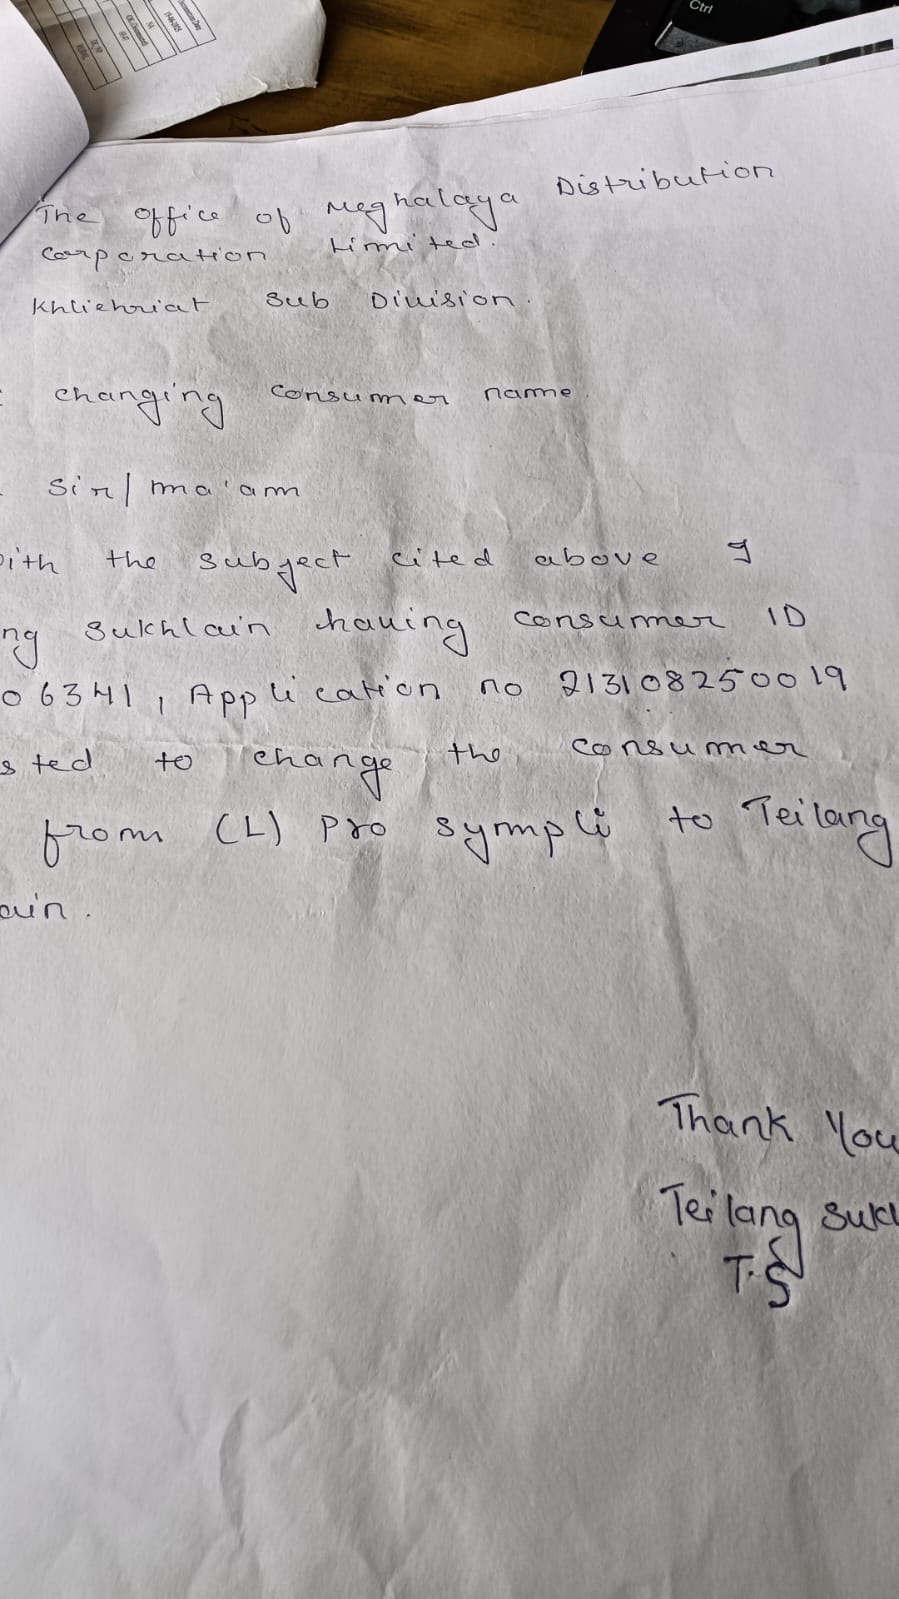 Ctrl
The office of Meghalaya Distribution
Corporation Limited.
Khliehriat Sub Division.
: changing consumer name.
sir/ma'am
with the subject cited above I
ng sukhlain having consumer ID
06341, Application no 213108250019
sted to change the consumer
from (L) Pro sympli to Teilang
ain.
Thank You
Teilang Sukl
T.S